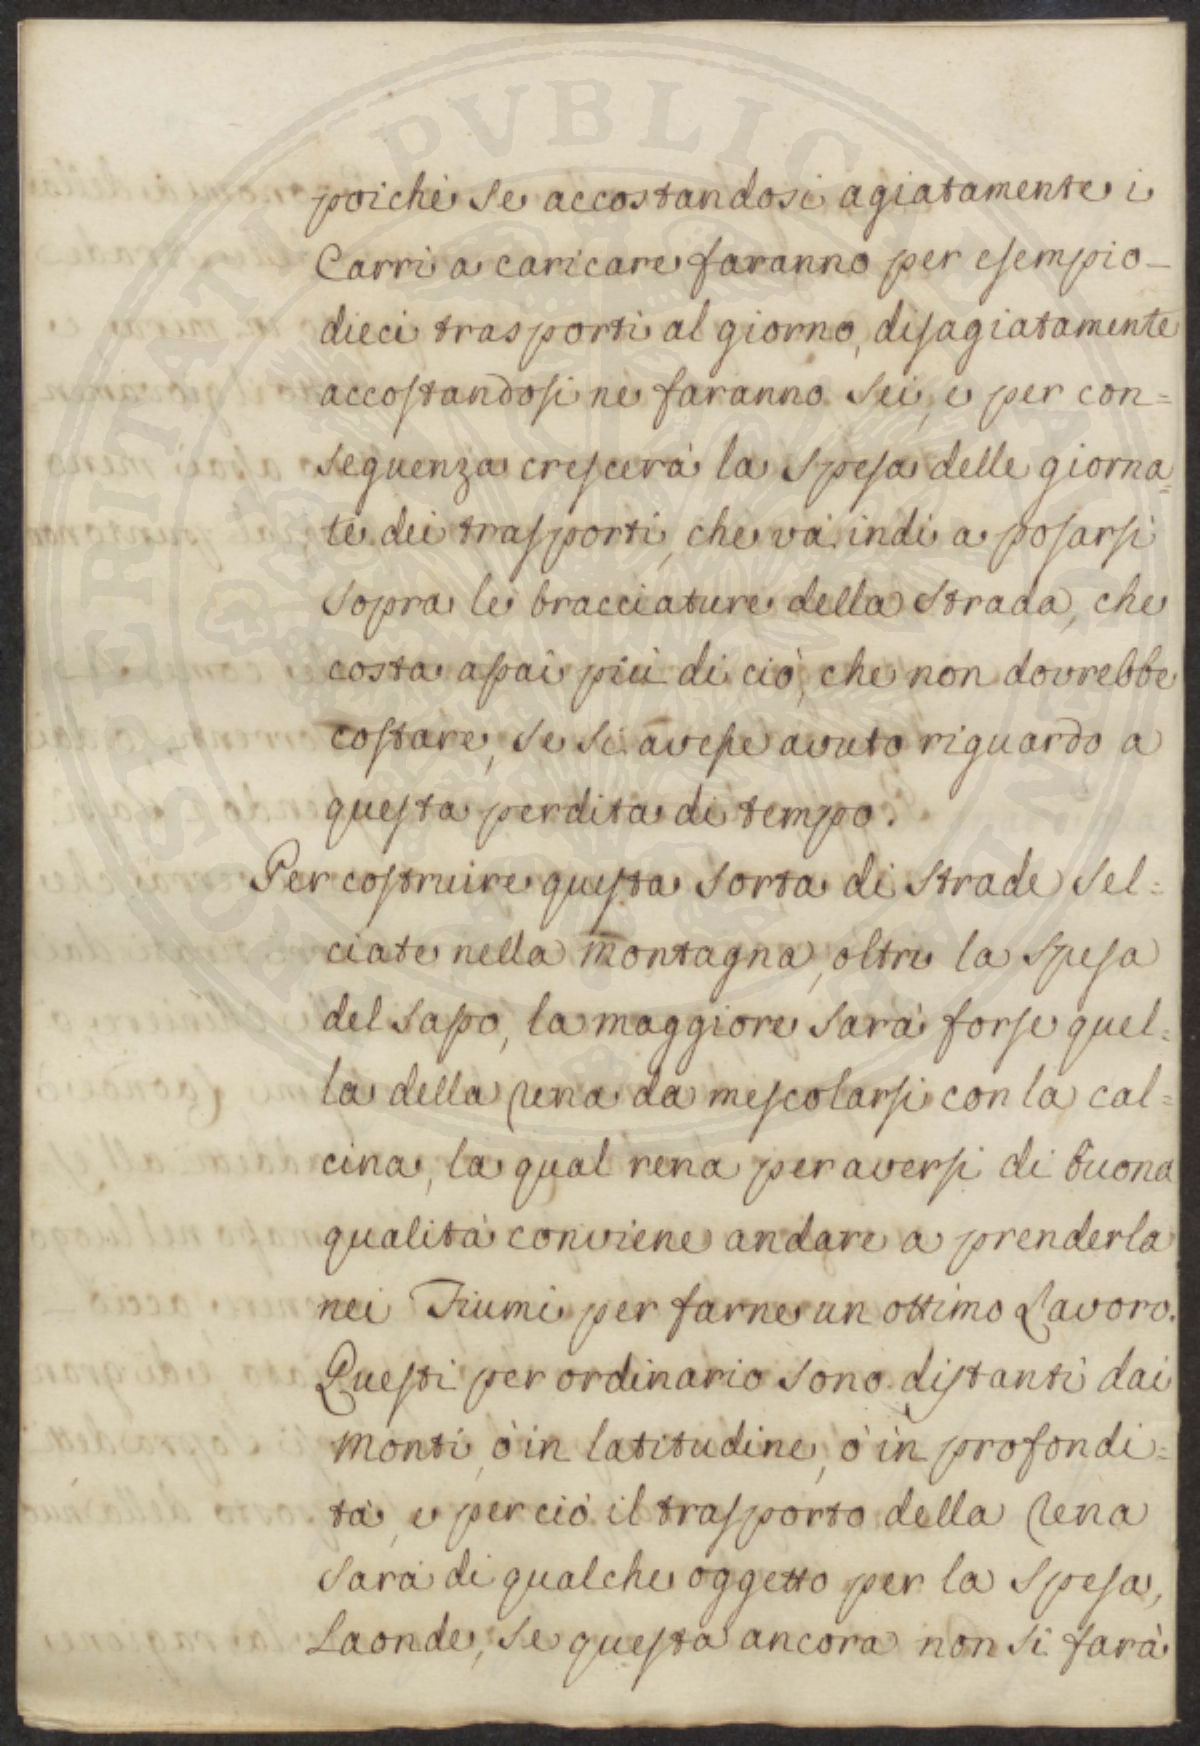 poichè se accostandosi agiatamente i
Carri a caricare faranno per esempio
dieci trasporti al giorno, disagiatamente
accostandosi ne faranno sei, e per con=
seguenza crescerà la spesa delle giorna=
te dei trasporti, che và indi a posarsi
sopra le bracciature della strada, che
costa assai più di ciò, che non dovrebbe
costare, se si avesse avuto riguardo a
questa perdita di tempo.
Per costruire questa sorta di strade sel=
ciate nella montagna, oltre la spesa
del sasso, la maggiore sarà forse quel=
la della rena da mescolarsi con la cal=
cina, la qual rena per aversi di buona
qualità conviene andare a prenderla
nei Fiumi per farne un ottimo Lavoro.
Questi per ordinario sono distanti dai
monti, ò in latitudine, ò in profondi=
tà, e perciò il trasporto della rena
sarà di qualche oggetto per la spesa,
Laonde, se questa ancora non si farà
PVBLIC